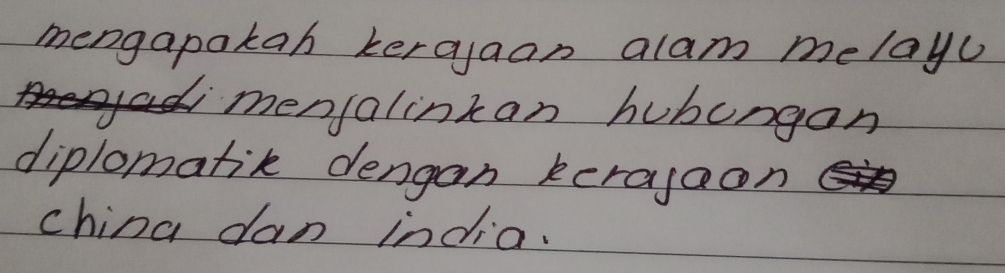 mengapakah kerajaan alam melayu
menjadi menjalinkan hubungan
diplomatik dengan kerajaan
china dan india.